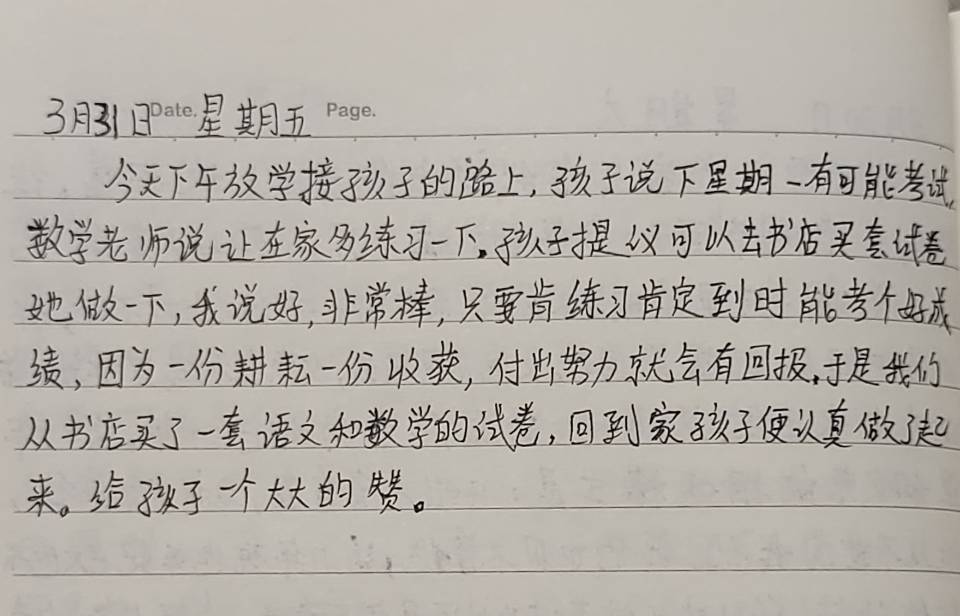 3月31日Date. 星期五 Page.
今天下午放学接孩子的路上,孩子说下星期一有可能考试,
数学老师说让在家多练习一下,孩子提议可以去书店买套试卷
她做一下,我说好,非常棒,只要肯练习肯定到时能考个好成
绩,因为一份耕耘一份收获,付出努力就会有回报,于是我们
从书店买了一套语文和数学的试卷,回到家孩子便认真做了起
来。给孩子一个大大的赞。